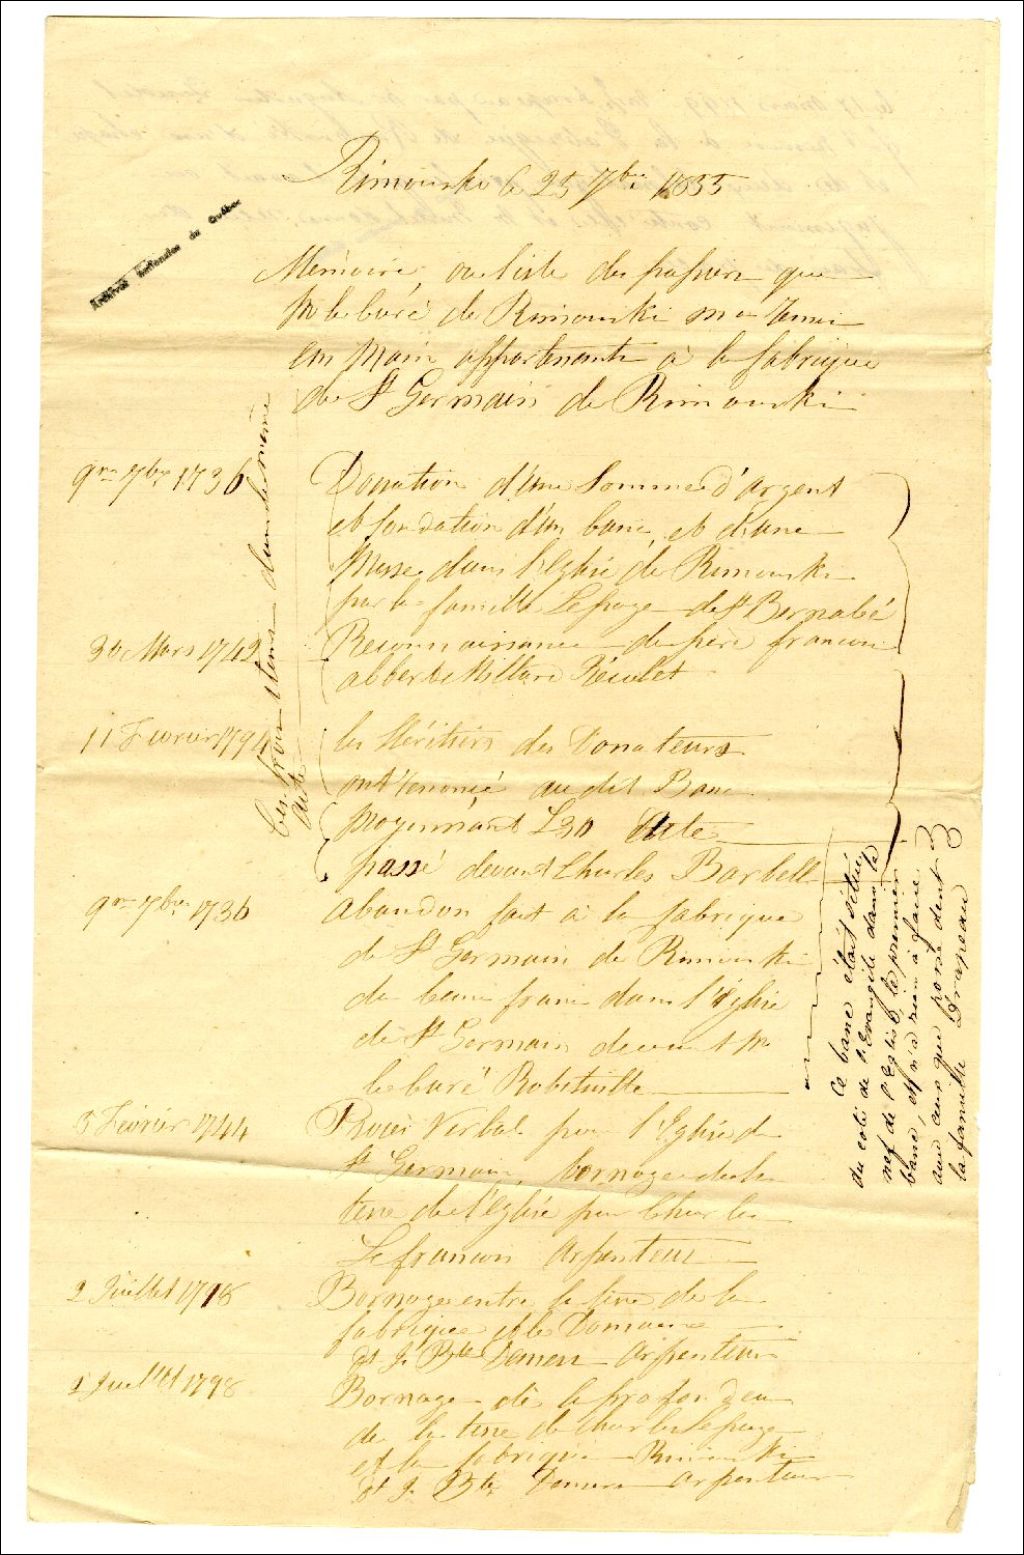 Rimouski le 25 7bre 1855
Archives Nationales du Québec
Mémoire, ou liste des papiers que
Mr le Curé de Rimouski m'a remis
en main appartenants à la fabrique
de St Germain de Rimouski
9me 7bre 1736
Donation d'une Somme d'argent
et fondation d'un banc, et d'une
Messe dans l'Eglise de Rimouski
par la famille Lepage de St Bernabé
30 Mars 1742
Reconnaissance de père francois
albert Millard Récolet
11 Fevrier 1794
les Héritiers des Donateurs
ont renoncé au dit Banc
moyennant L30 Acte
passé devant Charles Barbell
Ces trois items dans le meme
acte
9me 7bre 1736
abandon fait à la fabrique
de St Germain de Rimouski
de banc franc dans l'Eglise
de St Germain devant Mr
le Curé Robiteille
5 Février 1744
Procès Verbal pour l'Eglise de
St Germain, bornage de la
terre de l'Eglise par Charles
Lefrancois Arpenteur
2 Juillet 1798
Bornage entre la terre de la
fabrique et le Domaine
pt J. Bte Demers Arpenteur
1 Juellet 1798
Bornage de la profondeur
de la terre de Charles Lepage
et la fabrique Rimouski
pt J. Bte Demers arpenteur
Ce banc était situé
du coté de l'Evangile dans la
nef de l'Eglise, le premier
banc, et n'a rien à faire
aux bancs que possèdent
la famille Drapeau